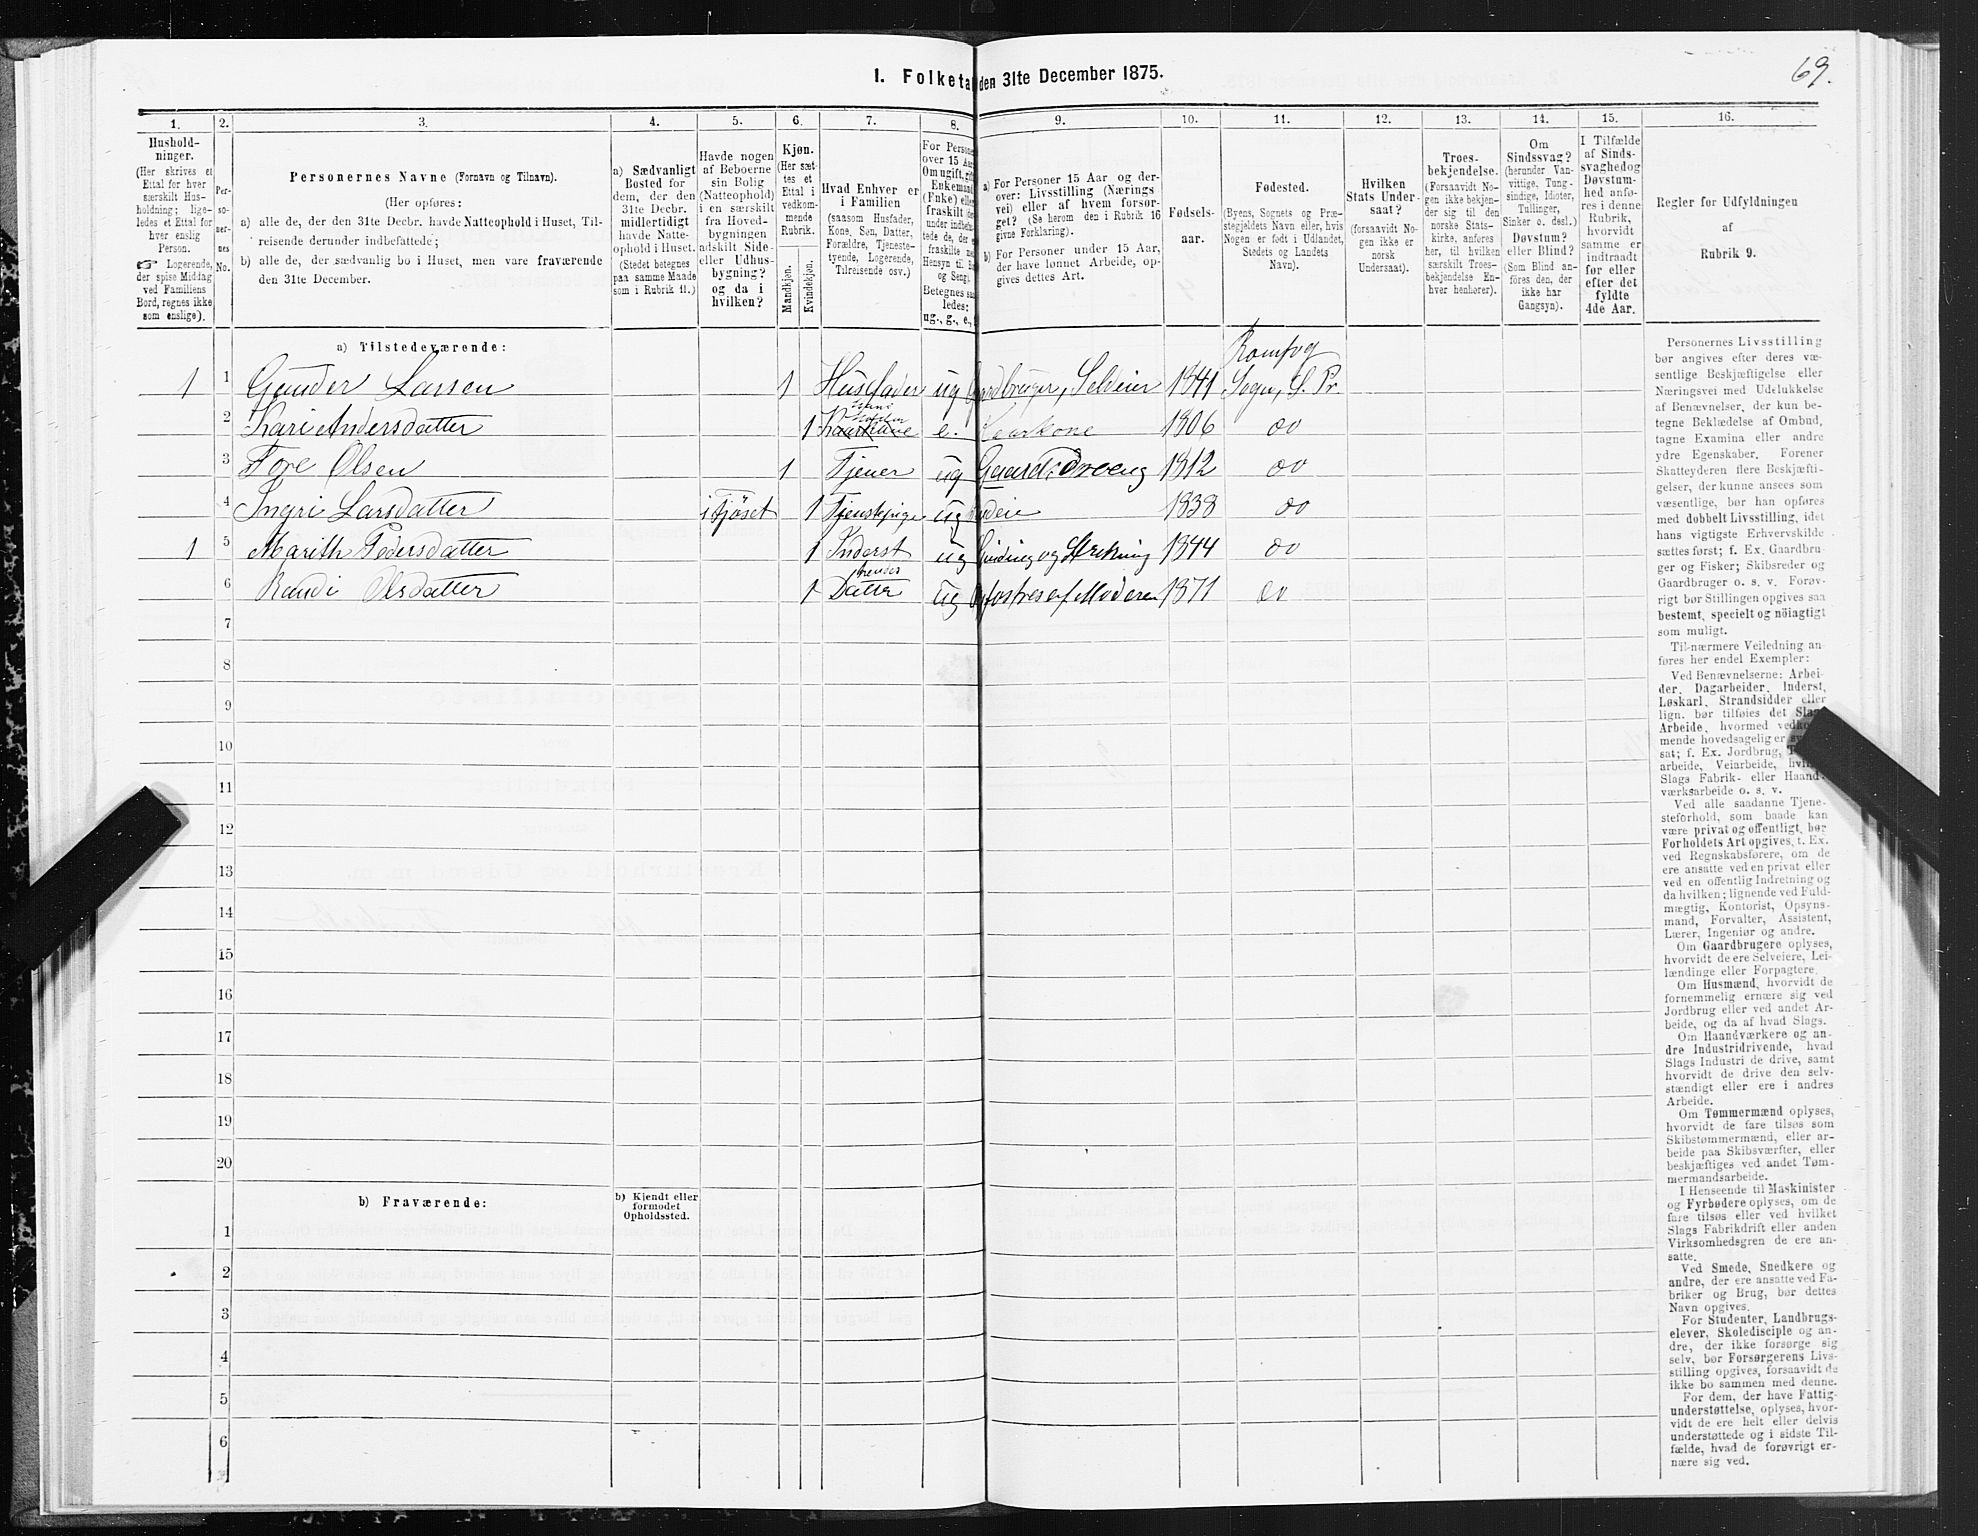 I. Folketa den 31te December 1875.
69.
1. 2. 3. 4. 5. 6. 7. 8. 9. 10. 11. 12. 13. 14. 15. 16.
Hushold-
ninger.
(Her skrives et
Ettal for hver
særskilt Hus-
holdning; lige-
ledes et Ettal for
hver enslig
Person.
☞ Logerende,
der spise Middag
ved Familiens
Bord, regnes ikke
som enslige).
Per-
so-
ner-
nes
No.
Personernes Navne (Fornavn og Tilnavn).
(Her opføres:
a) alle de, der den 31te Decbr. havde Natteophold i Huset, Til-
reisende derunder indbefattede;
b) alle de, der sædvanlig bo i Huset, men vare fraværende
den 31te December.
a) Sædvanligt
Bosted for
dem, der den
31te Decbr.
midlertidigt
havde Natte-
ophold i Huset.
(Stedet betegnes
paa samme Maade
som i Rubrik 11.)
Havde nogen
af Beboerne
sin Bolig
(Natteophold)
i en særskilt
fra Hoved-
bygningen
adskilt Side-
eller Udhus-
bygning?
og da i
hvilken?
Kjøn.
(Her sæt-
tes et
Ettal i
vedkom-
mende
Rubrik.
Mandkjøn.
Kvindekjøn.
Hvad Enhver er
i Familien
(saasom Husfader,
Kone, Søn, Datter,
Forældre, Tjeneste-
tyende, Logerende,
Tilreisende osv.)
For Persone
over 15 Aar
Om ugift, gift
Enkemand
(Enke) eller
fraskilt
under indbefa
tede de, der e
fraskilte
Hensyn til B
og Seng).
Betegnes saa
ledes:
ug., g., e.,
a) For Personer 15 Aar og der-
over: Livsstilling (Nærings
vei) eller af hvem forsør-
get? (Se herom den i Rubrik 16
givne Forklaring).
b) For Personer under 15 Aar,
der have lønnet Arbeide, op-
gives dettes Art.
Fødsels-
aar.
Fødested.
(Byens, Sognets og Præ-
stegjeldets Navn eller, hvis
Nogen er født i Udlandet,
Stedets og Landets
Navn).
Hvilken
Stats Under-
saat?
(forsaavidt No-
gen ikke er
norsk
Undersaat).
Troes-
bekjendelse.
(Forsaavidt No-
gen ikke bekjen-
der sig til den
norske Stats-
kirke, anføres
her, til hvilken
særskilt Troes-
bekjendelse En-
hver henhører).
Om
Sindssvag?
(herunder Van-
vittige, Tung-
sindige, Idioter,
Tullinger,
Sinker o. desl.)
Døvstum?
eller Blind?
(Som Blind an-
føres den, der
ikke har
Gangsyn).
I Tilfælde
af Sinds-
svaghed og
Døvstum-
hed anfø-
res i denne
Rubrik,
hvorvidt
samme er
indtraadt
før eller
efter det
fyldte
4de Aar.
Regler for Udfyldningen
af
Rubrik 9.
a) Tilstedeværende:
Romfog
1 1 Gunder Larsen 1 Husfader ug Gaardbruger, Selveier 1841 Sogn, S. Pr.
hans
Moder
2 Kari Andersdatter 1 e. Kaarkone 1806 do
3 Tore Olsen 1 Tjener ug Gaardsdreng 1812 do
4 Ingri Larsdatter i Fjøset 1 Tjenstpige ug Budeie 1838 do
1 5 Marith Pedersdatter 1 Inderst ug Binding og Strikning 1844 do
hendes
6 Randi Olsdatter 1 Datter ug Opfostres af Moderen 1871 do
7
8
9
10
11
12
13
14
15
16
17
18
19
20
b) Fraværende:
b) Kjendt eller
formodet
Opholdssted.
1
2
3
4
5
6
Personernes Livsstilling
bør angives efter deres væ-
sentlige Beskjæftigelse eller
Næringsvei med Udelukkelse
af Benævnelser, der kun be-
tegne Beklædelse af Ombud,
tagne Examina eller andre
ydre Egenskaber. Forener
Skatteyderen flere Beskjæfti-
gelser, der kunne ansees som
væsentlige, bør han opføres
med dobbelt Livsstilling, idet
hans vigtigste Erhvervskilde
sættes først; f. Ex. Gaardbru-
ger og Fisker; Skibsreder og
Gaardbruger o. s. v. Forøv-
rigt bør Stillingen opgives saa
bestemt, specielt og nöiagtigt
som muligt.
Til nærmere Veiledning an-
føres her endel Exempler:
Ved Benævnelserne: Arbei-
der, Dagarbeider, Inderst,
Løskarl, Strandsidder eller
lign. bør tilføies det Slags
Arbeide, hvormed vedkom-
mende hovedsagelig er
sat; f. Ex. Jordbrug,
arbeide, Veiarbeide, hvilket
Slags Fabrik- eller Haand-
værksarbeide o. s. v.
Ved alle saadanne Tjene-
steforhold, som baade kan
være privat og offentligt, bør
Forholdets Art opgives, t. Ex.
ved Regnskabsførere, om de
ere ansatte ved en privat eller
ved en offentlig Indretning og
da hvilken; lignende ved Fuld-
mægtig, Kontorist, Opsyns-
mand, Forvalter, Assistent,
Lærer, Ingeniør og andre.
Om Gaardbrugere oplyses,
hvorvidt de ere Selveiere, Lei-
lændinge eller Forpagtere.
Om Husmænd, hvorvidt de
fornemmelig ernære sig ved
Jordbrug eller ved andet Ar-
beide, og da af hvad Slags.
Om Haandværkere og an-
dre Industridrivende, hvad
Slags Industri de drive, samt
hvorvidt de drive den selv-
stændigt eller ere i andres
Arbeide.
Om Tømmermænd oplyses,
hvorvidt de fare tilsøs som
Skibstømmermænd, eller ar-
beide paa Skibsværfter, eller
beskjæftiges ved andet Tøm-
mermandsarbeide.
I Henseende til Maskinister
og Fyrbødere oplyses, om de
fare tilsøs eller ved hvilket
Slags Fabrikdrift eller anden
Virksomhedsgren de ere an-
satte.
Ved Smede, Snedkere og
andre, der ere ansatte ved Fa-
briker og Brug, bør dettes
Navn opgives.
For Studenter, Landbrugs-
elever, Skoledisciple og an-
dre, der ikke forsørge sig
selv, bør Forsørgerens Livs-
stilling opgives, forsaavidt de
ikke bo sammen med denne.
For dem, der have Fattig-
understøttelse, oplyses, hvor-
vidt de ere helt eller delvis
understøttede og i sidste Til-
fælde, hvad de forøvrigt er-
nære sig ved.